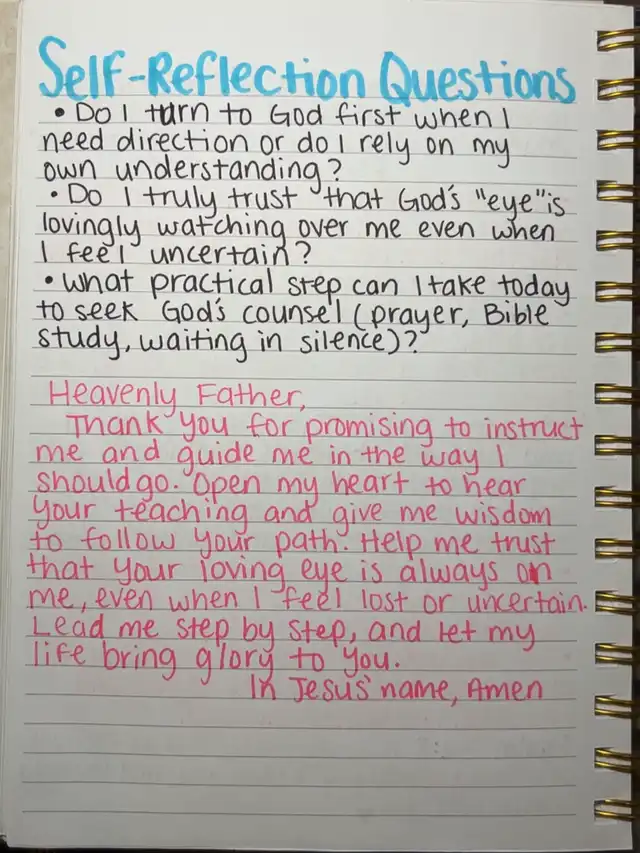 Self-Reflection Questions
• Do I turn to God first when I
need direction or do I rely on my
own understanding?
• Do I truly trust that God's "eye" is
lovingly watching over me even when
I feel uncertain?
• What practical step can I take today
to seek God's counsel (prayer, Bible
study, waiting in silence)?
Heavenly Father,
Thank You for promising to instruct
me and guide me in the way I
should go. Open my heart to hear
Your teaching and give me wisdom
to follow Your path. Help me trust
that Your loving eye is always on
me, even when I feel lost or uncertain.
Lead me step by step, and let my
life bring glory to You.
In Jesus' name, Amen